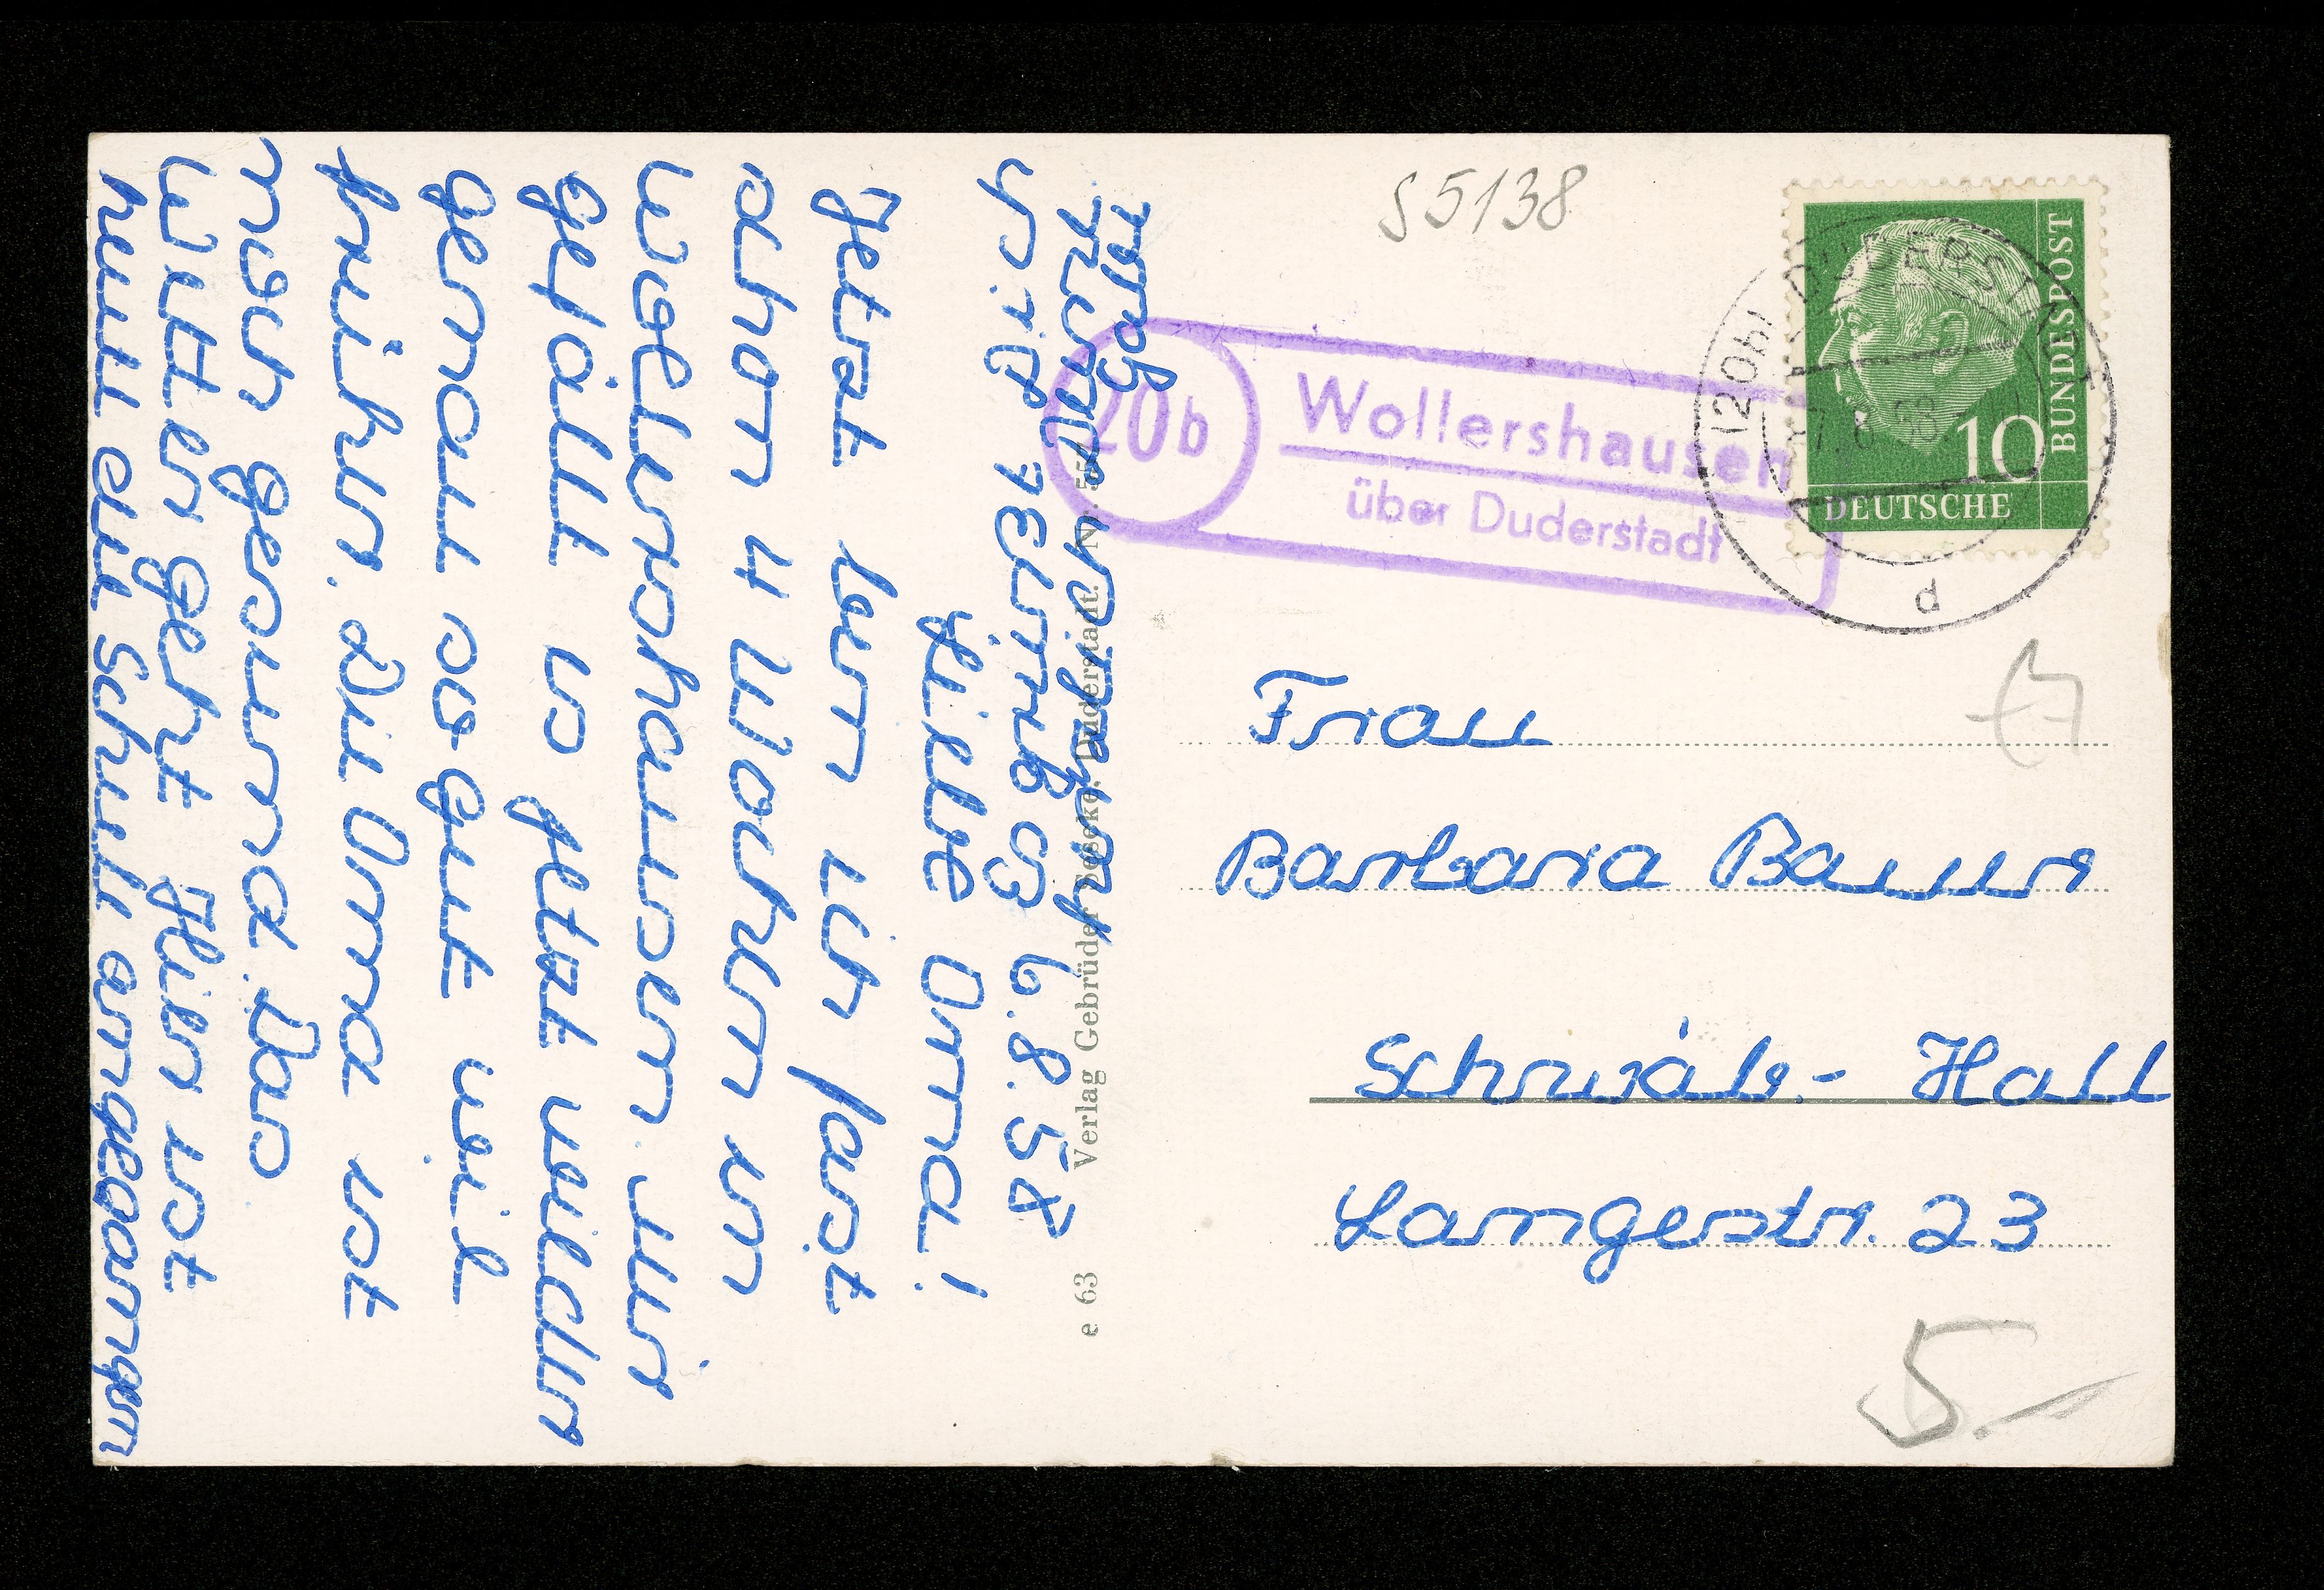 6.8.58
Liebe Oma!
Jetzt bin ich fast
schon 4 Wochen in
Wollershausen. mir
gefällt is jetzt wieder
genau so gut wie
früher. Die Oma ist
noch gesund. Das
Wetter geht. Hier ist
heute die Schule angegangen
e 63 Verlag Gebrüder Duderstadt. Nr.
S5138
20b
Wollershausen
über Duderstadt
(20b) DUDERSTADT
d
10
DEUTSCHE
BUNDESPOST
Frau
Barbara Baur
Schwäb.- Hall
Langestr. 23
5.-